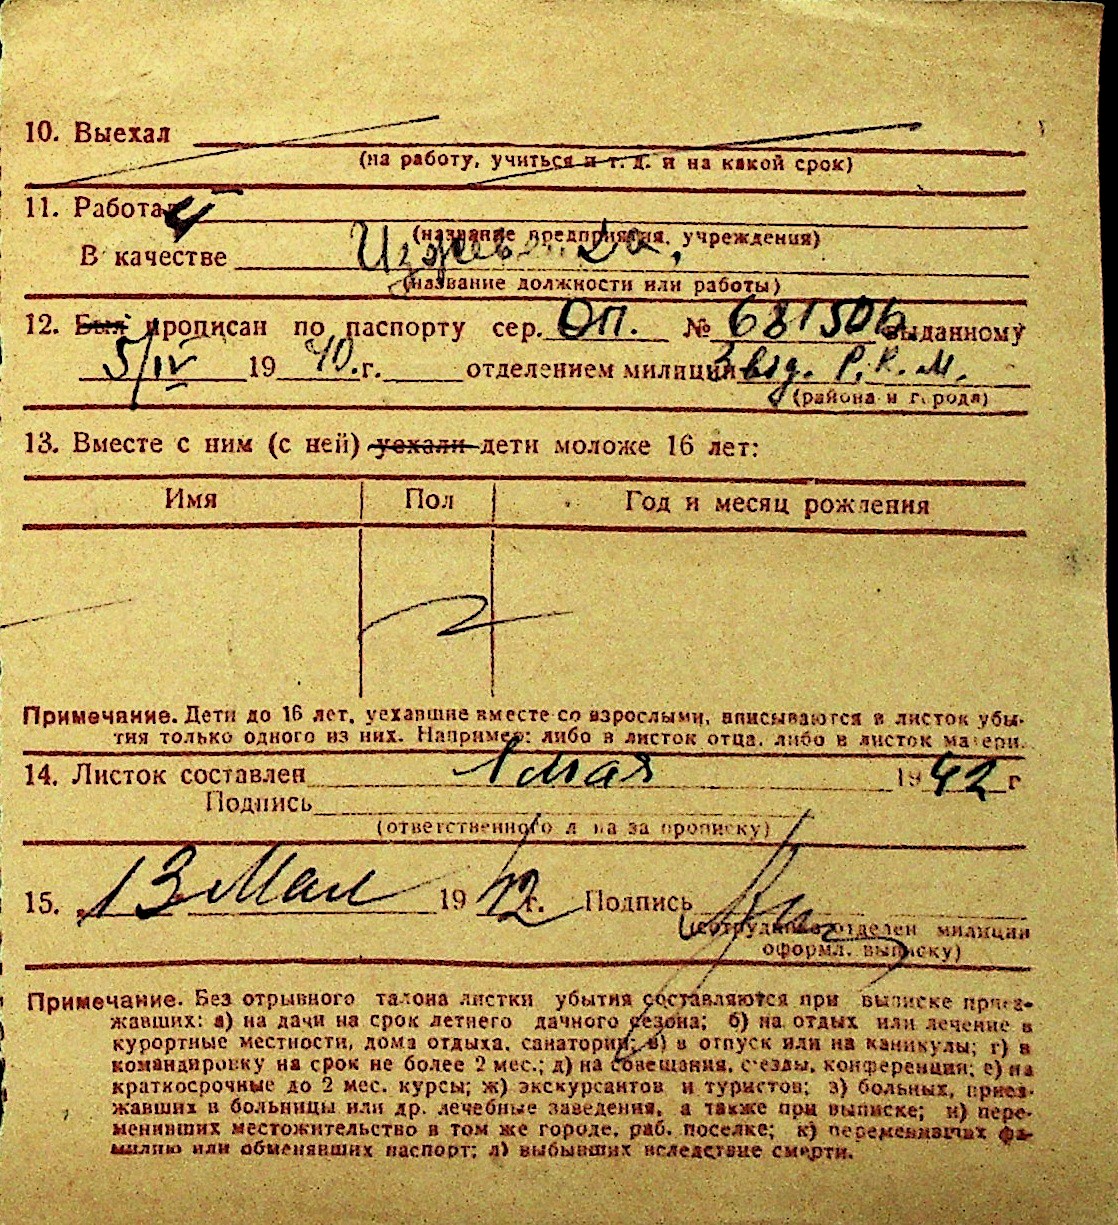 10. Выехал
(на работу, учиться и т. д. и на какой срок)
11. Работал
(название предприятия, учреждения)
В качестве Иждевенка,
(название должности или работы)
12. Был прописан по паспорту сер. ОП. № 681506 выданному
5/IV 1940.г. отделением милиции 3 вод. Р.К.М.
(района и города)
13. Вместе с ним (с ней) уехали дети моложе 16 лет:
Имя Пол Год и месяц рождения
Примечание. Дети до 16 лет, уехавшие вместе со взрослыми, вписываются в листок убы-
тия только одного из них. Например: либо в листок отца, либо в листок матери.
14. Листок составлен 1 мая 1942 г
Подпись
(ответственного л на за прописку)
15. 13 Мая 1942 г. Подпись
(сотрудника отделен милиции
оформл. выписку)
Примечание. Без отрывного талона листки убытия составляются при выписке приез-
жавших: а) на дачи на срок летнего дачного сезона; б) на отдых или лечение в
курортные местности, дома отдыха, санатории; в) в отпуск или на каникулы; г) в
командировку на срок не более 2 мес.; д) на совещания, с'езды, конференции; е) на
краткосрочные до 2 мес. курсы; ж) экскурсантов и туристов; з) больных, приез-
жавших в больницы или др. лечебные заведения, а также при выписке; и) пере-
менивших местожительство в том же городе, раб. поселке; к) переменивших фа-
милию или обменявших паспорт; л) выбывших вследствие смерти.